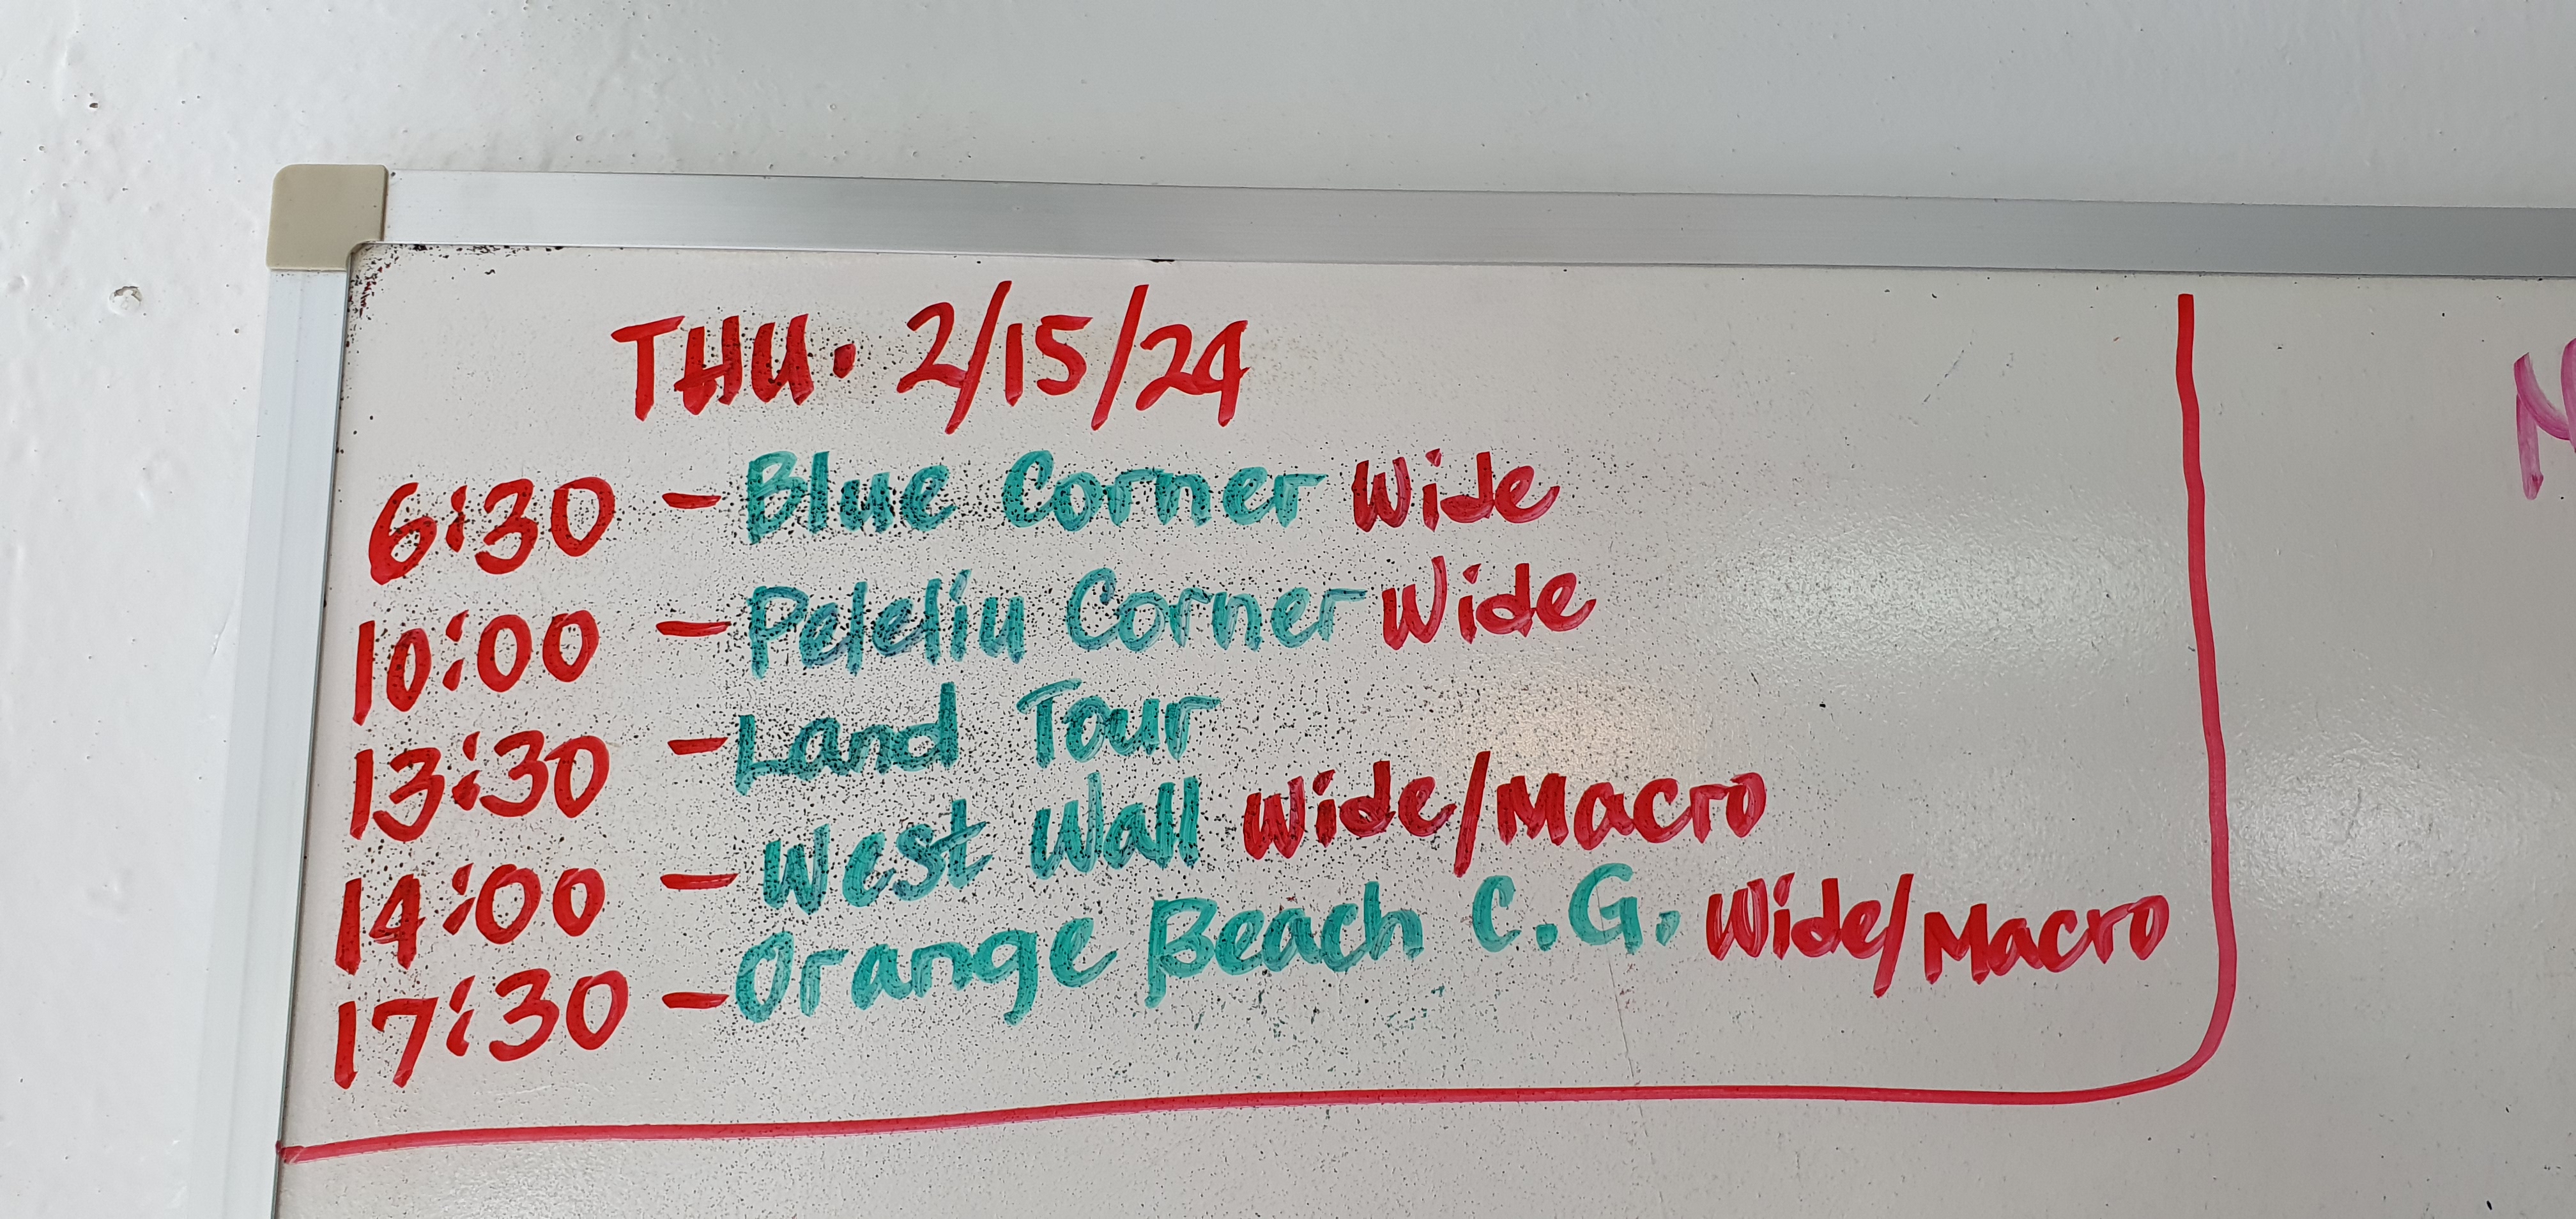 THU. 2/15/24
6:30 - Blue Corner Wide
10:00 - Peleliu Corner Wide
13:30 - Land Tour
14:00 - West Wall Wide/Macro
17:30 - Orange Beach C.G. Wide/Macro